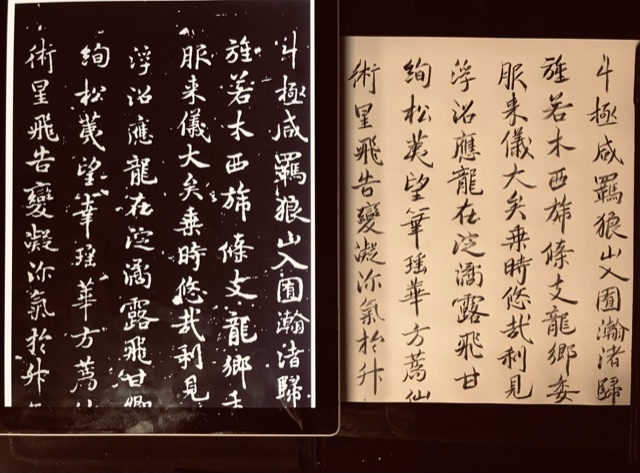 斗極咸羈狼山入囿瀚渚歸
旌若木西旆條支龍鄉
服来儀大矣乘時悠哉利見
浮沼應龍在淀潏露飛甘
絢松望瑶華方薦
術星飛告變凝沴氣於升
斗極咸羈狼山入囿瀚渚歸
旌若木西旆條支龍鄉委
服来儀大矣乘時悠哉利見
浮沼應龍在淀潏露飛甘
絢松望瑶華方薦仙
術星飛告變凝沴氣於升